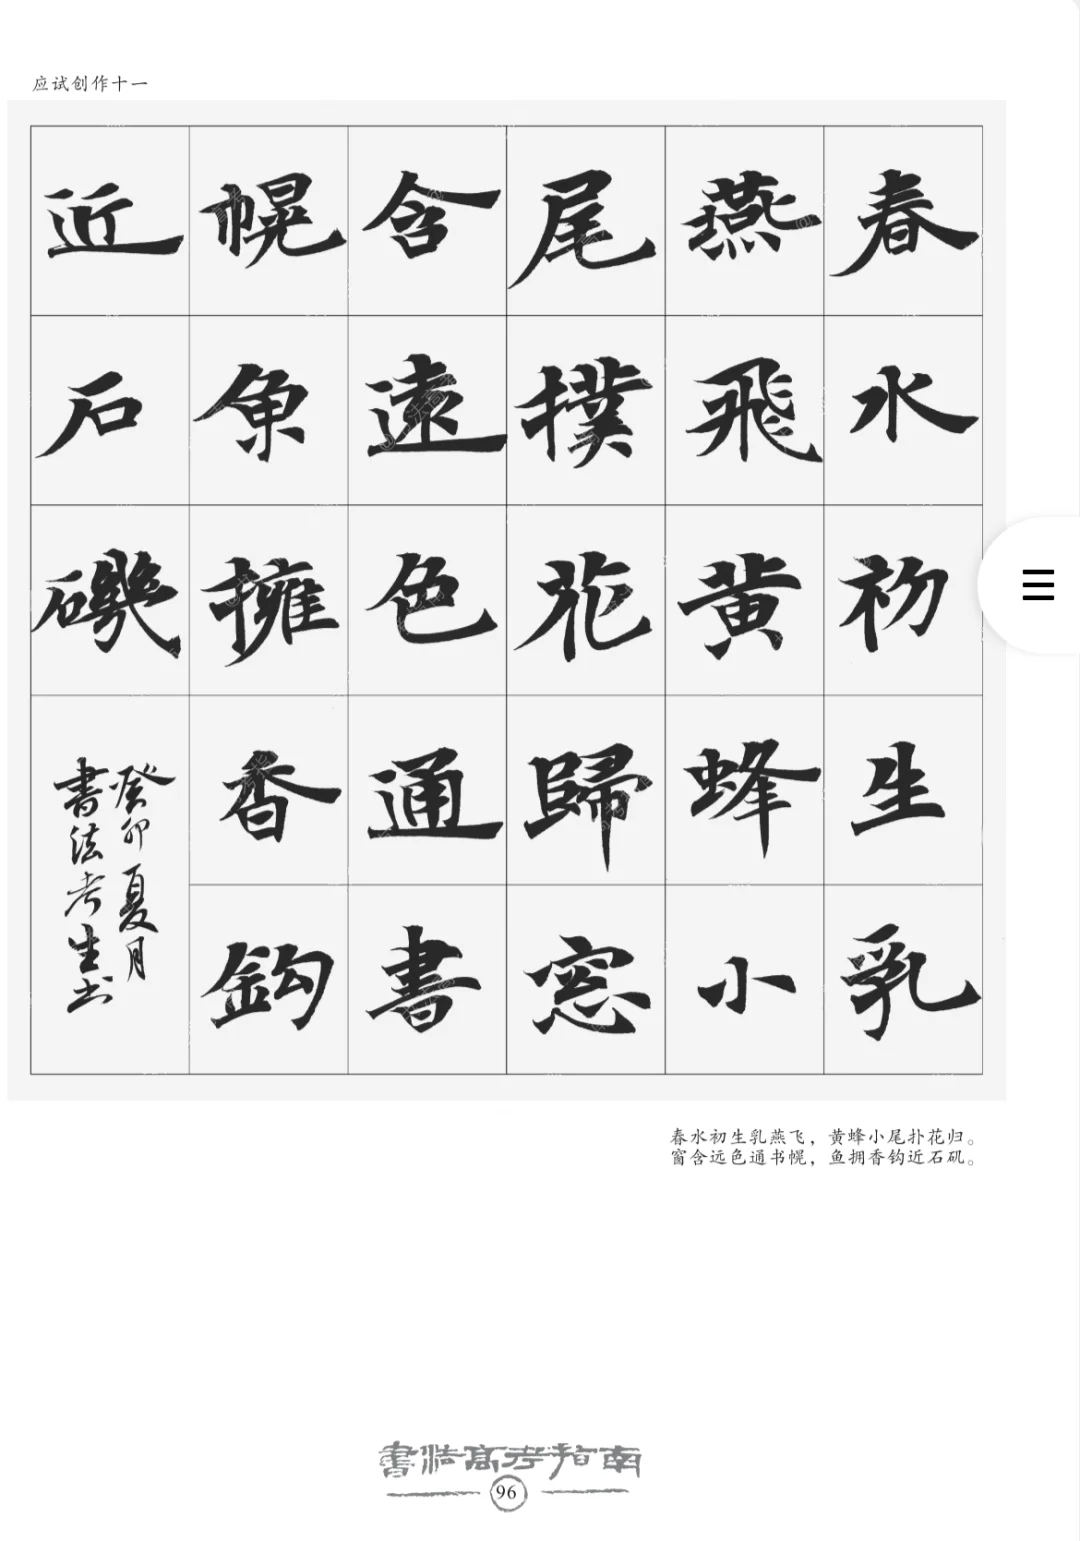 应试创作十一
春水初生乳
燕飛黄蜂小
尾撲花歸窓
含遠色通書
幌魚擁香鈎
近石磯
癸卯夏月
書法考生书
春水初生乳燕飞，黄蜂小尾扑花归。
窗含远色通书幌，鱼拥香钩近石矶。
書法高考指南
96